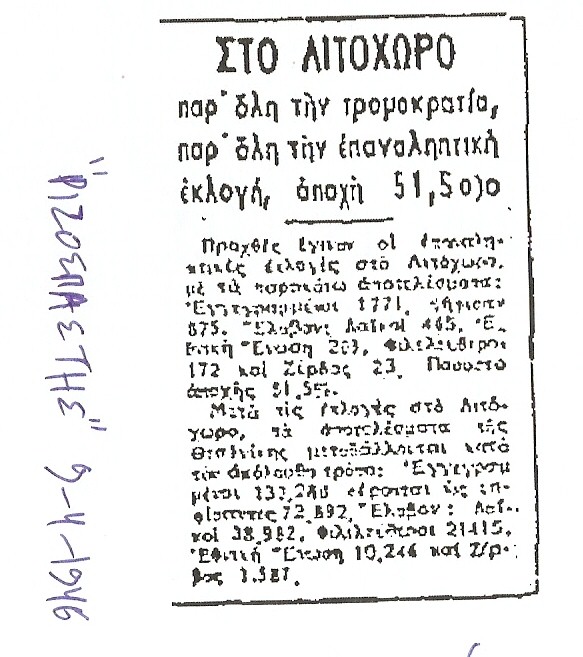 ΣΤΟ ΛΙΤΟΧΩΡΟ
παρ' ὅλη τὴν τρομοκρατία,
παρ' ὅλη τὴν ἐπαναληπτική
ἐκλογή, ἀποχὴ 51,5ο)ο
Προχθὲς ἔγιναν οἱ ἐπαναλη-
πτικὲς ἐκλογὲς στὸ Λιτόχωρο,
μὲ τὰ παρακάτω ἀποτελέσματα:
Ἐγγεγραμμένοι 1771, ψήφισαν
875. Ἔλαβον: Λαϊκοὶ 465, Ἐ-
θνικὴ Ἕνωση 203, Φιλελεύθεροι
172 καὶ Ζέρβας 23. Ποσοστὸ
ἀποχῆς 51,5
Μετὰ τὶς ἐκλογὲς στὸ Λιτό-
χωρο, τὰ ἀποτελέσματα τῆς
Θεσ)νίκης μεταβάλλονται κατὰ
τὸν ἀκόλουθο τρόπο: Ἐγγεγραμ
μένοι φέρονται ὡς
72.892, Ἔλαβον: Λαϊ-
κοὶ 38.982, Φιλελεύθεροι 21415,
Ἐθνικὴ Ἕνωση 10.244 καὶ Ζέρ-
βας 1.587.
"ΡΙΖΟΣΠΑΣΤΗΣ" 9-4-1946